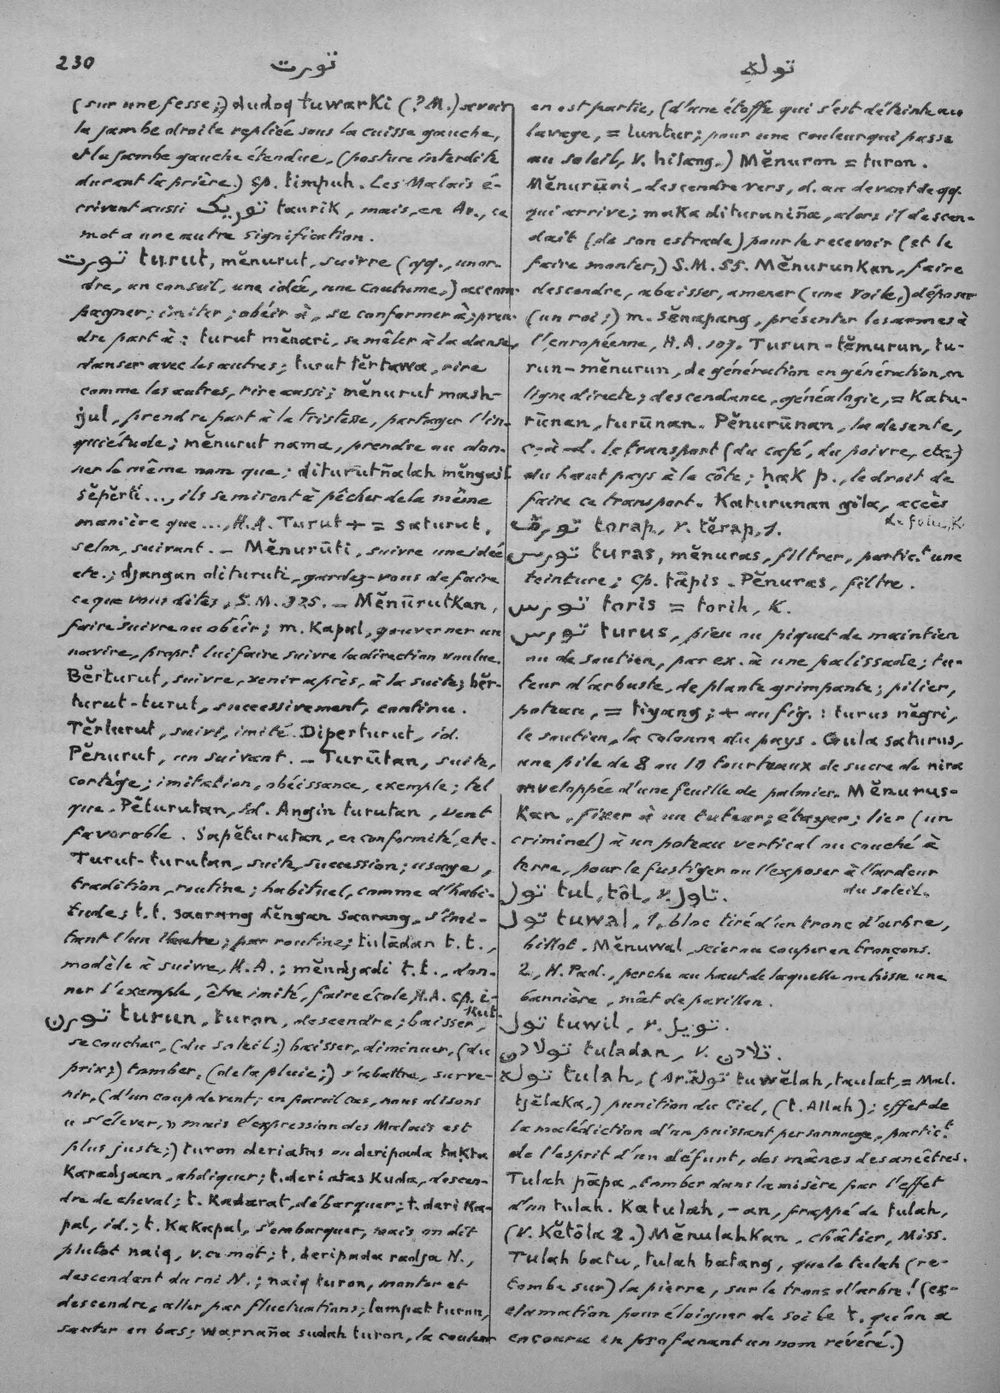 230
تورت
توله
(sur une fesse;) dudoq tuwarki (?M.) avoir
la jambe droite repliée sous la cuisse gauche,
et la jambe gauche étendue, (posture interdite
durant la prière.) cp. timpuh. Les Malais é-
crivent aussi توريک taurik, mais, en Ar., ce
mot a une autre signification.
تورت turut, mĕnurut, suivre (qq., un or-
dre, un conseil, une idée, une coutume,) accom-
pagner; imiter; obéir à, se conformer à; pren-
dre part à: turut mĕnari, se mêler à la danse,
danser avec les autres; turut tĕrtawa, rire
comme les autres, rire aussi; mĕnurut mash-
ġul, prendre part à la tristesse, partager l'in-
quiétude; mĕnurut nama, prendre ou don-
ner le même nom que; diturūtñalah mĕngail
sĕpĕrti..., ils se mirent à pêcher de la même
manière que..., H.A. Turut + = saturut,
selon, suivant. – Mĕnurūti, suivre une idée
etc.; djangan dituruti, gardez-vous de faire
ce que vous dites, S.M. 325. – Mĕnūrutkan,
faire suivre ou obéir; m. kapal, gouverner un
navire, propr.t lui faire suivre la direction voulue.
Bĕrturut, suivre, venir après, à la suite; bĕr-
turut-turut, successivement, continu.
Tĕrturut, suivi, imité. Diperturut, id.
Pĕnurut, un suivant. – Turūtan, suite,
cortège; imitation, obéissance, exemple; tel
que. Pĕturutan, id. Angin turutan, vent
favorable. Sapĕturutan, en conformité, etc.
Turut-turutan, suite, succession; usage,
tradition, routine; habituel, comme d'habi-
tude; t.t. saorang dĕngan saorang, s'imi-
tant l'un l'autre; par routine; tulādan t.t.,
modèle à suivre, H.A.; mĕndjadi t.t., don-
ner l'exemple, être imité, faire école, H.A. cp. i-
kut.
تورن turun, turon, descendre; baisser,
se coucher, (du soleil;) baisser, diminuer, (du
prix;) tomber, (de la pluie;) s'abattre, surve-
nir, (d'un coup de vent; en pareil cas, nous disons
« s'élever, » mais l'expression des Malais est
plus juste;) turon deriatas ou deripada takta
karadjaan, abdiquer; t. deri atas kuda, descen-
dre de cheval; t. kadarat, débarquer; t. deri ka-
pal, id.; t. kakapal, s'embarquer, mais on dit
plutôt naiq, v. ce mot; t. deripada radja N.,
descendant du roi N.; naiq turon, monter et
descendre, aller par fluctuations; lompat turun,
sauter en bas; warnaña sudah turon, la couleur
en est partie, (d'une étoffe qui s'est déteinte au
lavage, = luntur; pour une couleur qui passe
au soleil, v. hilang.) Mĕnuron = turon.
Mĕnurūni, descendre vers, d. au devant de qq.
qui arrive; maka dituruniña, alors il descen-
dait (de son estrade) pour le recevoir (et le
faire monter,) S.M. 55. Mĕnurunkan, faire
descendre, abaisser, amener (une voile,) déposer
(un roi;) m. sĕnapang, présenter les armes à
l'européenne, H.A. 107. Turun-tĕmurun, tu-
run-mĕnurun, de génération en génération, en
ligne directe; descendance, généalogie, = katu-
rūnan, turūnan. Pĕnurūnan, la descente,
c.-à-d. le transport (du café, du poivre, etc.)
du haut pays à la côte; ḥak p., le droit de
faire ce transport. Katurunan gīla, accès
de folie, K.
تورڤ torap, v. tĕrap, 1.
تورس turas, mĕnuras, filtrer, partic.t une
teinture; cp. tāpis. Pĕnuras, filtre.
تورس toris = torih, K.
تورس turus, pieu ou piquet de maintien
ou de soutien, par ex. à une palissade; tu-
teur d'arbuste, de plante grimpante; pilier,
poteau, = tiyang; + au fig.: turus nĕgri,
le soutien, la colonne du pays. Gula saturus,
une pile de 8 ou 10 tourteaux de sucre de nira
enveloppée d'une feuille de palmier. Mĕnurus-
kan, fixer à un tuteur; étayer; lier (un
criminel) à un poteau vertical ou couché à
terre, pour le fustiger ou l'exposer à l'ardeur
du soleil.
تول tul, tōl, v. تاول.
تول tuwal, 1. bloc tiré d'un tronc d'arbre,
billot. Mĕnuwal, scier ou couper en tronçons.
2. H. Pad., perche au haut de laquelle on hisse une
bannière, mât de pavillon.
تول tuwil, v. تويل.
تولادن tuladan, v. تلادن.
توله tulah, (Ar. تولة tuwĕlah, taulat, = Mal.
tjĕlaka,) punition du Ciel, (t. Allah); effet de
la malédiction d'un puissant personnage, partic.t
de l'esprit d'un défunt, des mânes des ancêtres.
Tulah pāpa, tomber dans la misère par l'effet
d'un tulah. Katulah, –an, frappé de tulah,
(v. Kĕtōla 2.) Mĕnulahkan, châtier, Miss.
Tulah batu, tulah batang, que le tulah (re-
tombe sur) la pierre, sur le tronc d'arbre! (ex-
clamation pour éloigner de soi le t. qu'on a
encouru en profanant un nom révéré.)